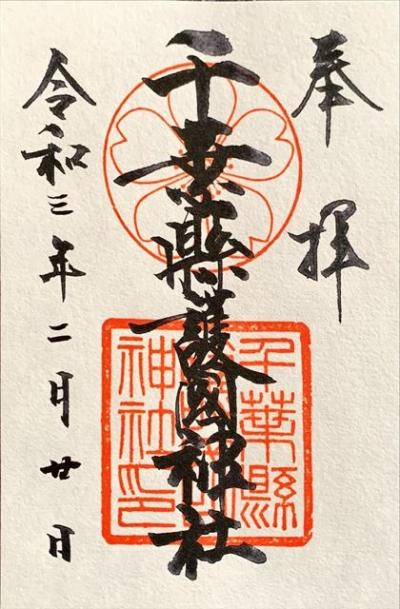 奉拝
千葉縣護國神社
令和三年二月廿日
千葉縣
神社印